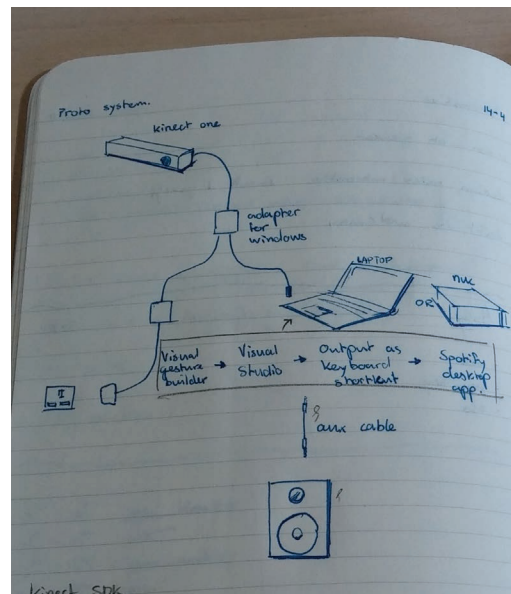 Proto system.
14-4
kinect one
adapter
for
windows
LAPTOP
nuc
OR
Visual
gesture
builder
→ Visual
Studio
→ Output as
keyboard
shortcut
→ Spotify
desktop
app.
aux cable
kinect SDK